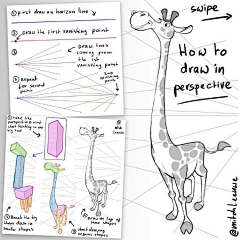 ① first draw an horizon line
② draw the first vanishing point
③ Draw lines coming from the 1st vanishing point
2nd vanishing point
④ Repeat for second point
⑤ take the perspective and start
⑥ Break the big shape down in smaller shapes
⑦ draw on top of your shapes
⑧ start drawing organic shapes
swipe
How to draw in perspective
@mitchleeuwe